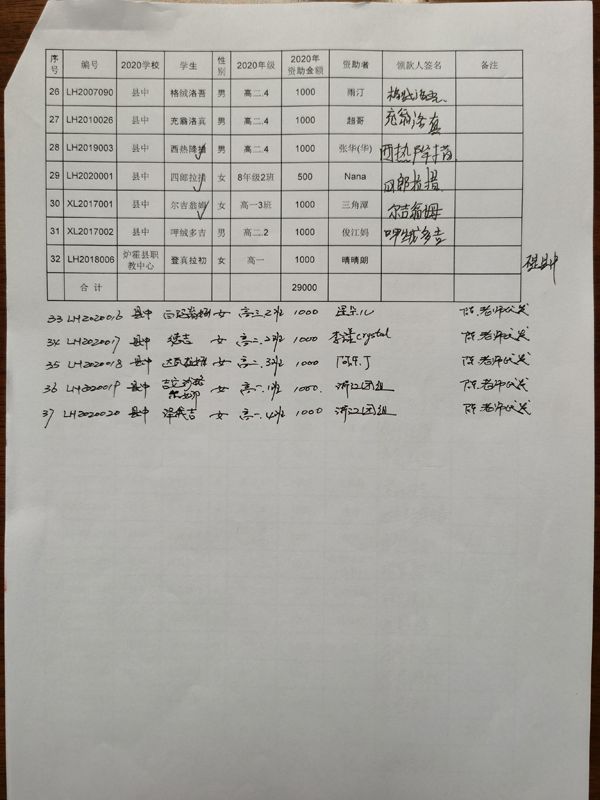 序号 编号 2020学校 学生 性别 2020年级 2020年资助金额 资助者 领款人签名 备注
26 LH2007090 县中 格绒洛吾 男 高二.4 1000 雨汀 格绒洛吾
27 LH2010026 县中 充翁洛宾 男 高二.4 1000 超哥 充翁洛宾
28 LH2019003 县中 西热降措 男 高二.4 1000 张华(华) 西热降措
29 LH2020001 县中 四郎拉措 女 8年级2班 500 Nana 四郎拉措
30 XL2017001 县中 尔吉翁姆 女 高一3班 1000 三角潭 尔吉翁姆
31 XL2017002 县中 呷绒多吉 男 高二.2 1000 俊江妈 呷绒多吉
32 LH2018006 炉霍县职教中心 登真拉初 女 高一 1000 晴晴朗
合 计 29000
33 LH2020016 县中 女 高三.2班 1000 陈老师代发
34 LH2020017 县中 德吉 女 高二.2班 1000 李洋crystal 陈老师代发
35 LH2020018 县中 女 高二.3班 1000 陈老师代发
36 LH2020019 县中 女 高一.1班 1000. 浙江团组 陈老师代发
37 LH2020020 县中 女 高一.4班 1000 浙江团组 陈老师代发